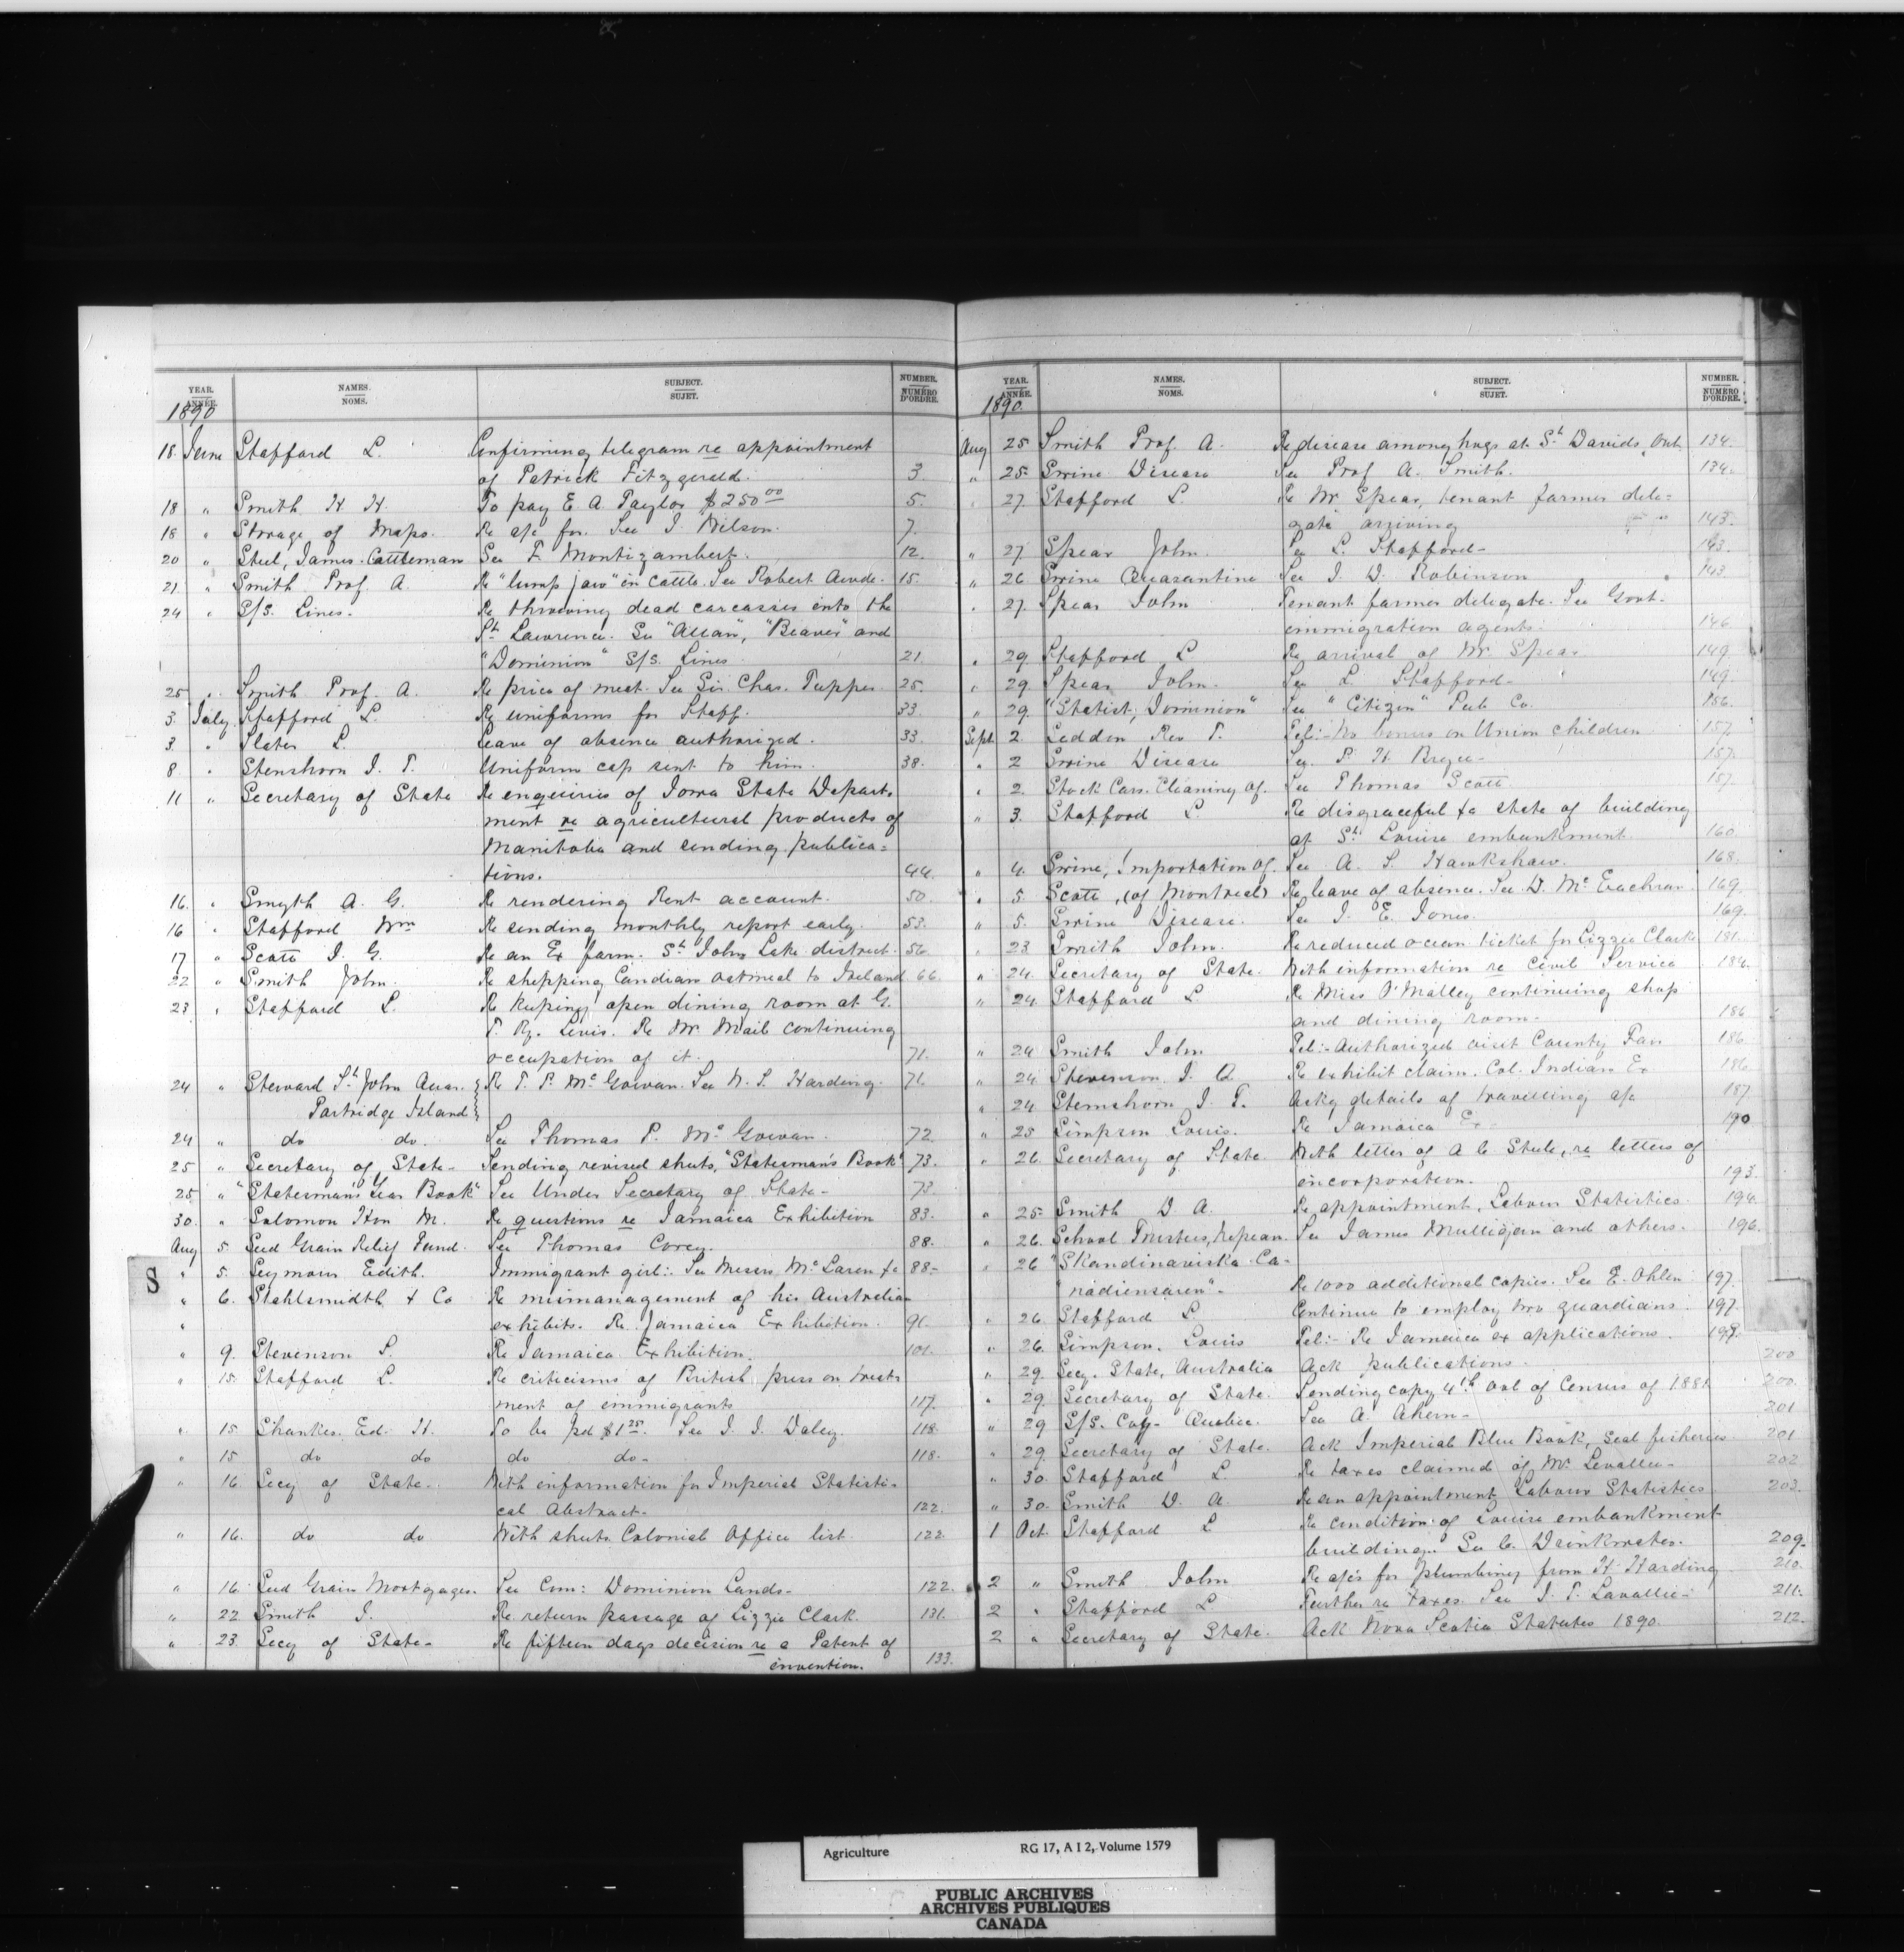 YEAR. NAMES. SUBJECT. NUMBER.
ANNÉE. NOMS. SUJET. NUMÉRO D'ORDRE.
1890
18 June Stafford L. Confirming telegram re appointment
of Patrick Fitzgerald. 3
18 " Smith H. H. To pay E. A. Taylor $250 00 5.
18 " Storage of Maps. Re a/c for. See J. Wilson. 7.
20 " Steel, James. Cattleman See F. Montizambert. 12.
21 " Smith Prof. A. Re "lump jaw" in cattle. See Robert Awde. 15.
24 " S/S. Lines. Re throwing dead carcasses into the
St. Lawrence. See "Allan", "Beaver" and
"Dominion" S/S. Lines 21
25 " Smith Prof. A. Re price of meat. See Sir Chas. Tupper. 25.
3 July Stafford L. Re uniforms for Staff. 33
3 " Slater L. Leave of absence authorized. 33.
8 " Stenshorn J. T. Uniform cap sent to him. 38.
11 " Secretary of State Re enquiries of Iowa State Depart-
ment re agricultural products of
Manitoba and sending publica=
tions. 44.
16. " Smyth A. G. Re rendering Rent account. 50.
16 " Stafford Wm Re sending monthly report early. 53.
17 " Scott J. G. Re an Ex farm. St. Johns Lake district. 56.
22 " Smith John. Re shipping Candian oatmeal to Ireland 66.
23 " Stafford L. Re keeping open dining room at G.
T. Ry. Levis. Re Mr. Mail continuing
occupation of it. 71.
24 " Steward St. John Quar. Re T. P. McGowan. See N. S. Harding. 71.
Partridge Island
24 " do do. See Thomas P. McGowan. 72
25 " Secretary of State- Sending revised sheets, "Statesman's Book" 73.
25 " "Statesman's Year Book" See Under Secretary of State- 73
30. " Solomon Hon M. Re questions re Jamaica Exhibition 83.
Aug 5. Seed Grain Relief Fund. See Thomas Corey. 88.
" 5. Seymour Edith. Immigrant girl: See Messrs McLaren &c 88-
" 6. Stahlsmidth & Co Re mismanagement of his Australian
" exhibits. Re Jamaica Exhibition. 91.
" 9. Stevenson S. Re Jamaica Exhibition. 101.
" 15. Stafford L. Re criticisms of British press on treat-
ment of immigrants 117.
" 15. Shankes Ed. H. To be pd $1 25. See J. J. Daley. 118.
" 15 do do do do- 118.
" 16. Secy of State- With information for Imperial Statisti-
cal Abstract- 122.
" 16. do do With sheets Colonial Office list. 122
" 16. Seed Grain Mortgages. See Com: Dominion Lands- 122.
" 22 Smith J. Re. return passage of Lizzie Clark. 131.
" 23. Secy of State- Re fifteen days decision re a Patent of
invention. 133.
S
YEAR. NAMES. SUBJECT. NUMBER.
ANNÉE. NOMS. SUJET. NUMÉRO D'ORDRE.
1890.
Aug 25 Smith Prof. A. Re disease among hogs at St. Davids, Ont. 134.
" 25. Swine Disease See Prof A. Smith. 134.
" 27. Stafford L. Re Mr Spear, tenant farmer dele=
gate arriving 143.
" 27 Spear John. See L. Stafford- 143.
" 26 Swine Quarantine See J. W. Robinson 143
" 27. Spear John Tenant farmer delegate. See Govt.
immigration agents. 146
" 29. Stafford L Re arrival of Mr. Spear 149.
" 29. Spear John. See L. Stafford- 149.
" 29. "Statist, Dominion" See "Citizen" Pub Co. 156.
Sept. 2. Seddon Rev T. Tel:- No bonus on Union children 157.
" 2 Swine Disease See. P. H. 157.
" 2. Stock Cars. Cleaning of. See Thomas Scott 157.
" 3. Stafford L. Re disgraceful &c state of building
at St. Louise embankment. 160.
" 4. Swine, Importation of. See A. S. Hawkshaw. 168.
" 5. Scott, (of Montreal) Re leave of absence. See D. McEachran. 169.
" 5. Swine Disease. See J. E. Jones. 169.
" 23 Smith John. Re reduced ocean ticket for Lizzie Clarke 181.
" 24. Secretary of State. With information re Civil Service 184.
" 24. Stafford L. Re Miss O'Malley continuing shop
and dining room. 186
" 24 Smith John Tel:- Authorized visit County Fair 186
" 24. Stevenson J. A. Re exhibit claim. Col. Indian Ex 186
" 24 Stemshorn J. T. Ackg details of travelling a/c 187
" 25 Simpson Louis. Re Jamaica Ex- 190
" 26. Secretary of State With letter of A C Steele, re letters of
incorporation. 193.
" 25. Smith D A. Re appointment, Labour Statistics. 194.
" 26. School Trustees, Nepean See James Mulligan and others. 196.
" 26 "Skandinaviska Ca-
nadiensaren"- Re 1000 additional copies. See E. Ohlen 197.
" 26. Stafford L Continue to employ two guardians. 197.
" 26. Simpson. Louis Tel:- Re Jamaica ex applications. 199.
" 29. Secy. State, Australia Ack publications. 200
" 29. Secretary of State. Sending copy 4th vol of Census of 1881 200.
" 29 S/S. Coy- Quebec. See A. Ahern- 201
" 29. Secretary of State. Ack Imperial Blue Book, Seal fisheries 201
" 30. Stafford L. Re taxes claimed of Mr. Levallee- 202.
" 30. Smith D. A. Re an appointment Labour Statistics 203.
1 Oct. Stafford L Re condition of Louise embankment
building. See C. Drinkwater. 209.
2 " Smith John Re a/cs for plumbing from H. Harding 210.
2 " Stafford L Further re taxes. See J. T. Lavallee- 211.
2 " Secretary of State. Ack Nova Scotia Statutes 1890. 212.
Agriculture RG 17, A I 2, Volume 1579
PUBLIC ARCHIVES
ARCHIVES PUBLIQUES
CANADA